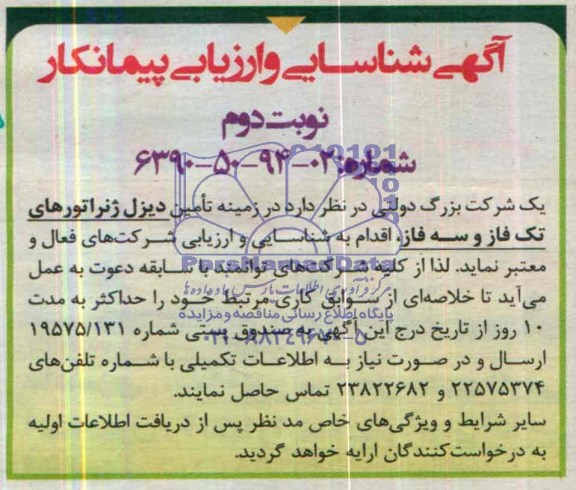 آگهی شناسایی وارزیابی پیمانکار
نوبت دوم
شماره: ۰۲-۹۴-۵۰-۶۳۹۰
یک شرکت بزرگ دولتی در نظر دارد در زمینه تأمین دیزل ژنراتورهای
تک فاز و سه فاز، اقدام به شناسایی و ارزیابی شرکت‌های فعال و
معتبر نماید. لذا از کلیه شرکت‌های توانمند با سابقه دعوت به عمل
می‌آید تا خلاصه‌ای از سوابق کاری مرتبط خود را حداکثر به مدت
۱۰ روز از تاریخ درج این آگهی به صندوق پستی شماره ۱۹۵۷۵/۱۳۱
ارسال و در صورت نیاز به اطلاعات تکمیلی با شماره تلفن‌های
۲۲۵۷۵۳۷۴ و ۲۳۸۲۲۶۸۲ تماس حاصل نمایند.
سایر شرایط و ویژگی‌های خاص مد نظر پس از دریافت اطلاعات اولیه
به درخواست‌کنندگان ارایه خواهد گردید.
ParsNamadData
پایگاه اطلاع رسانی مناقصه و مزایده